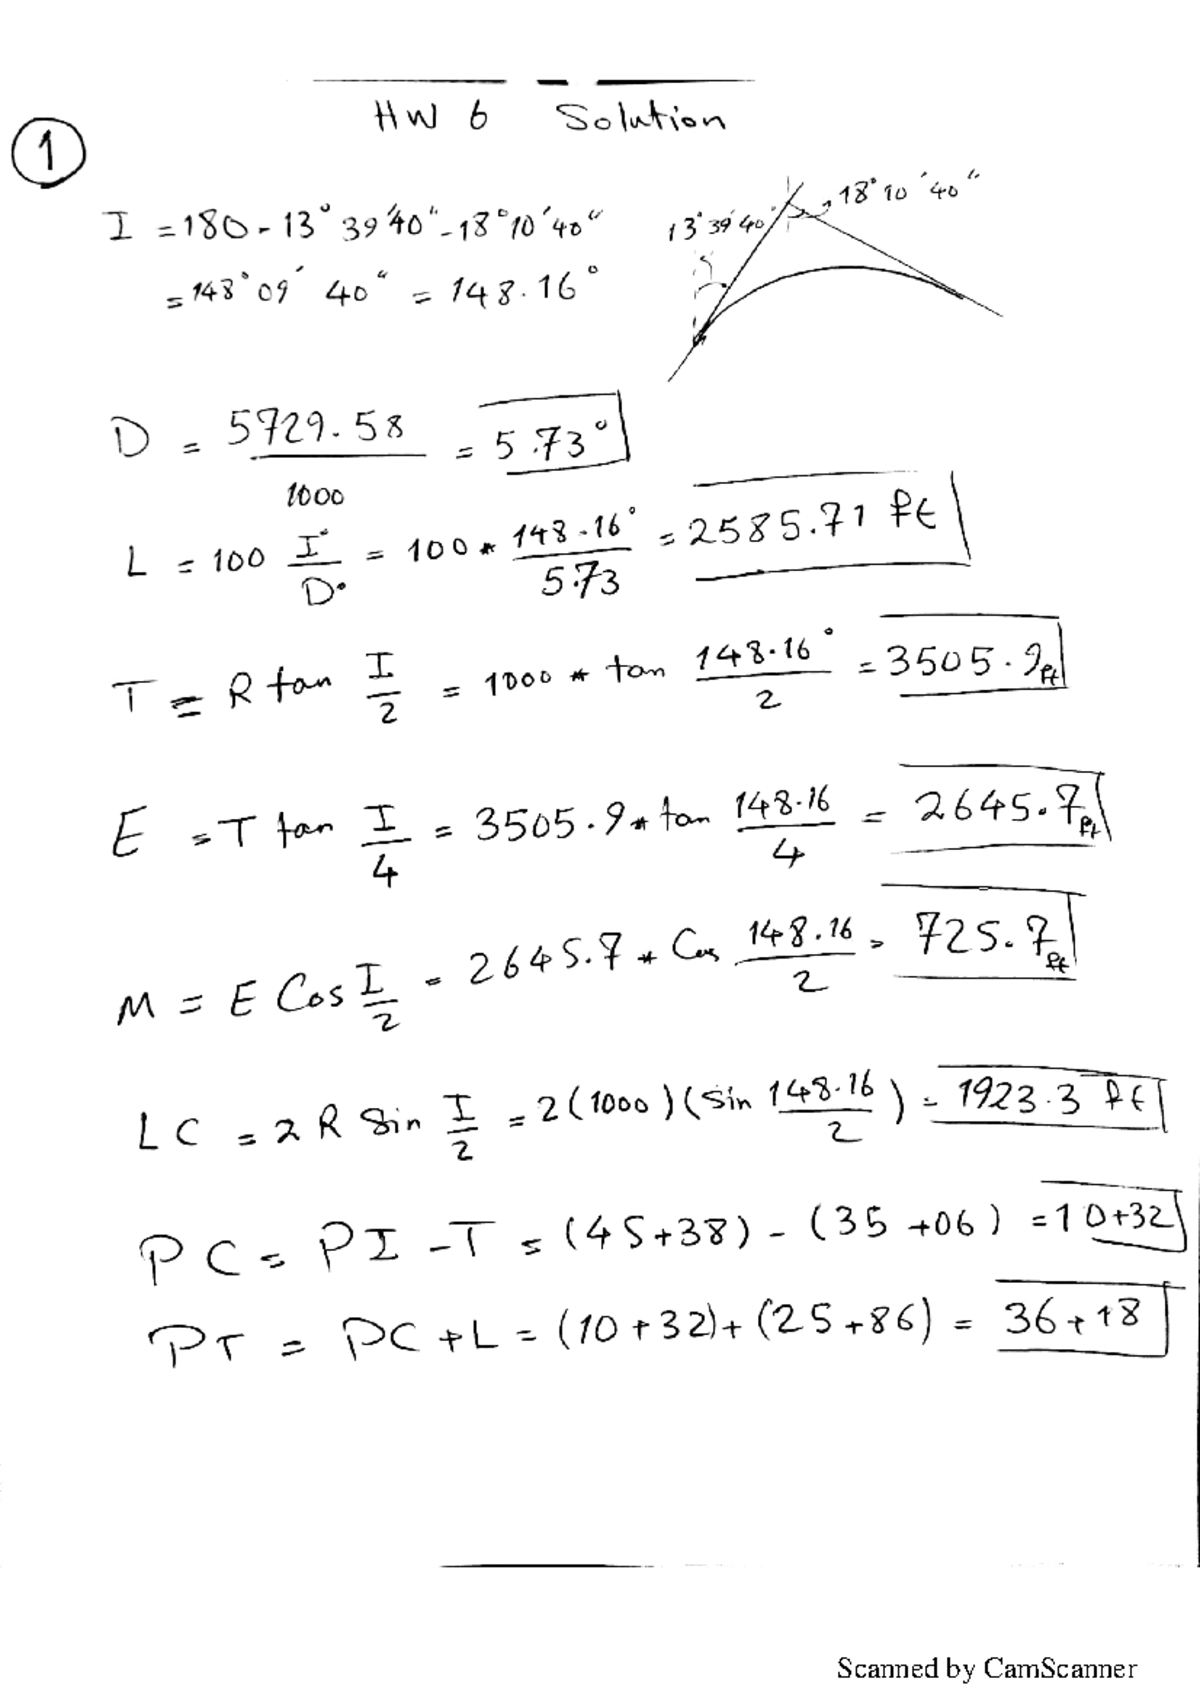 HW 6 Solution
1
I = 180 - 13° 39' 40" - 18° 10' 40"
13° 39' 40"
18° 10' 40"
= 148° 09' 40" = 148.16°
D = 5729.58 / 1000 = 5.73°
L = 100 I° / D° = 100 * 148.16° / 5.73 = 2585.71 ft
T = R tan I/2 = 1000 * tan 148.16° / 2 = 3505.9 ft
E = T tan I/4 = 3505.9 * tan 148.16 / 4 = 2645.7 ft
M = E Cos I/2 = 2645.7 * Cos 148.16 / 2 = 725.7 ft
LC = 2 R Sin I/2 = 2(1000)(sin 148.16 / 2) = 1923.3 ft
PC = PI - T = (45+38) - (35+06) = 10+32
PT = PC + L = (10+32) + (25+86) = 36+18
Scanned by CamScanner